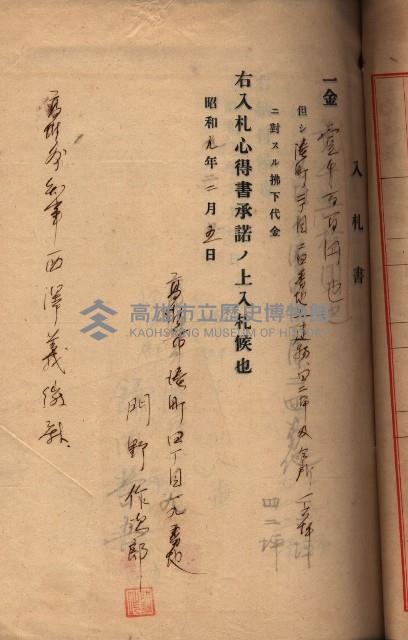 入札書
一金壹千五百圓也
但シ湊町四丁目二四番地建物四二坪及仝所
四二坪
ニ對スル拂下代金
右入札心得書承諾ノ上入札候也
昭和九年二月五日
高雄市湊町四丁目九番地
門野作次郎
高雄州知事西澤義徵殿
高雄市立歷史博物館
KAOHSIUNG MUSEUM OF HISTORY